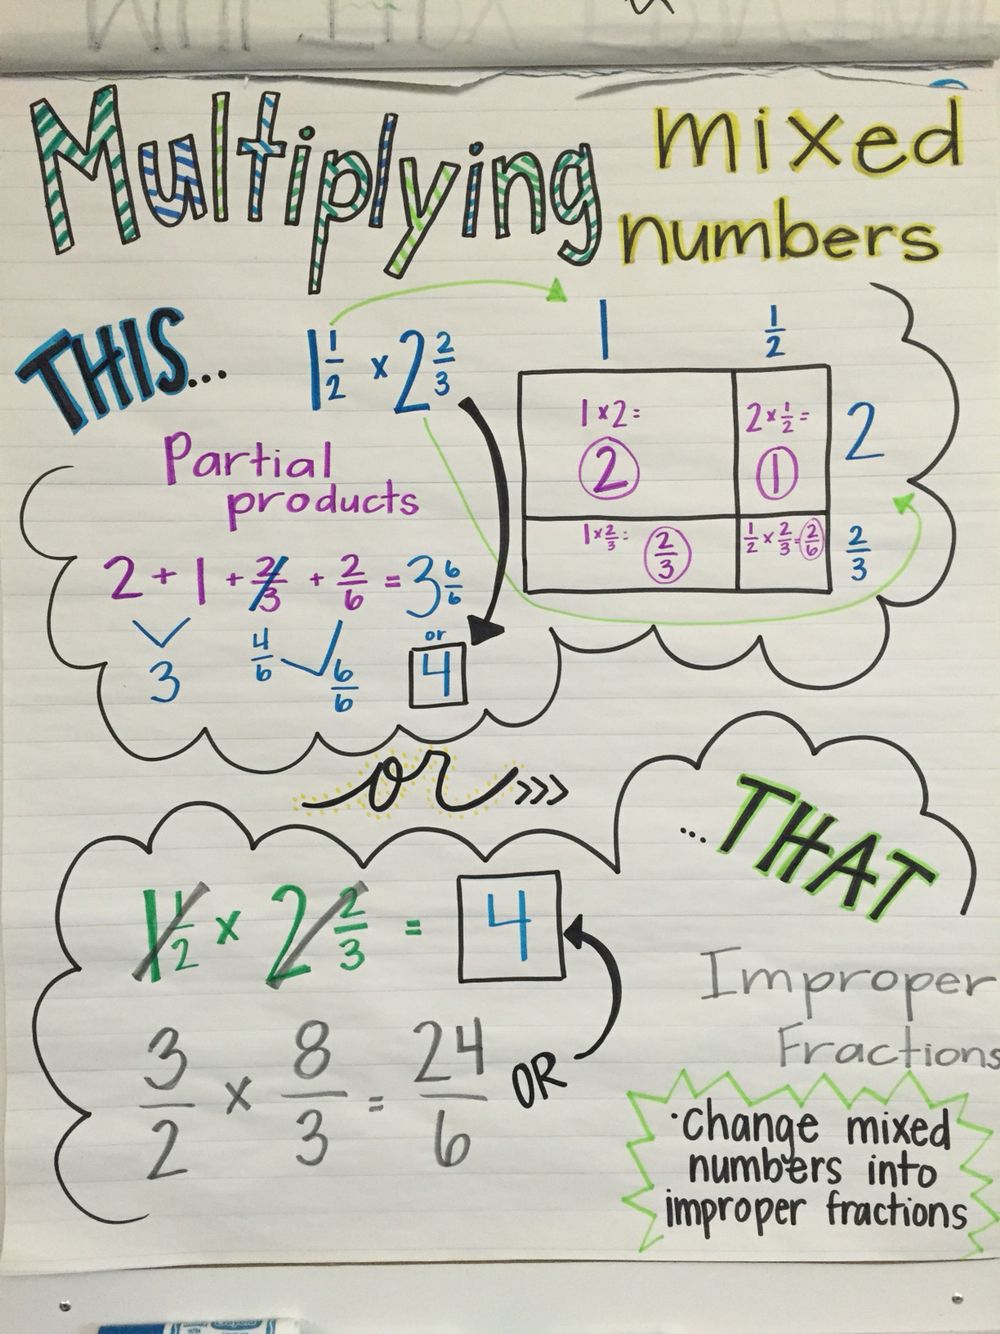 Multiplying mixed
numbers
THIS...
1 1/2 x 2 2/3
1 1/2
1x2= 2
2x1/2= 1
2
1x2/3= 2/3
1/2 x 2/3 = 2/6
2/3
Partial
products
2 + 1 + 2/3 + 2/6 = 3 6/6
3 4/6 6/6
or
4
or >>>
...THAT
1 1/2 x 2 2/3 = 4
3/2 x 8/3 = 24/6 OR
Improper
Fractions
·Change mixed
numbers into
improper fractions